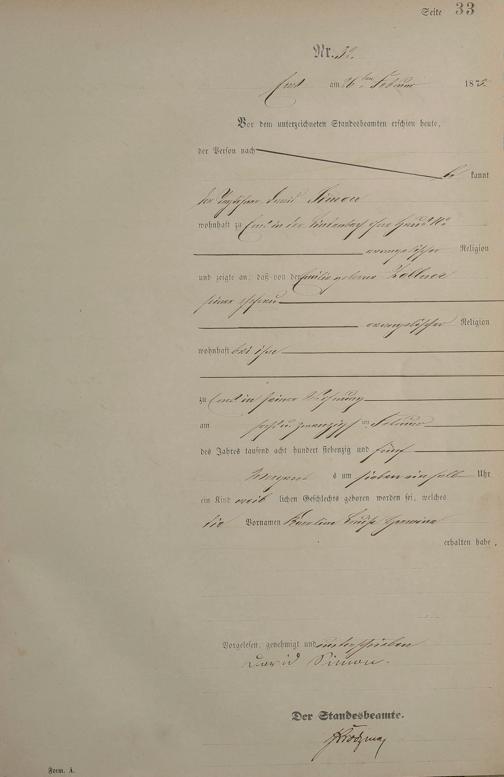 Seite 33
Nr. 32.
Ems am 26ten Februar 1875.
Vor dem unterzeichneten Standesbeamten erschien heute,
der Person nach
be kannt
der David Simon
wohnhaft zu Ems in der
evangelischer Religion
und zeigte an, daß von der Emilie geborne Zollner
seiner Ehefrau
evangelischer Religion
wohnhaft bei ihm
zu Ems in seiner Wohnung
am sechs u. zwanzigsten Februar
des Jahres tausend acht hundert siebenzig und fünf
Morgens um sieben ein halb Uhr
ein Kind weib lichen Geschlechts geboren worden sei, welches
die Vornamen Karoline
erhalten habe.
Vorgelesen, genehmigt und unterschrieben
David Simon.
Der Standesbeamte.
Form. A.